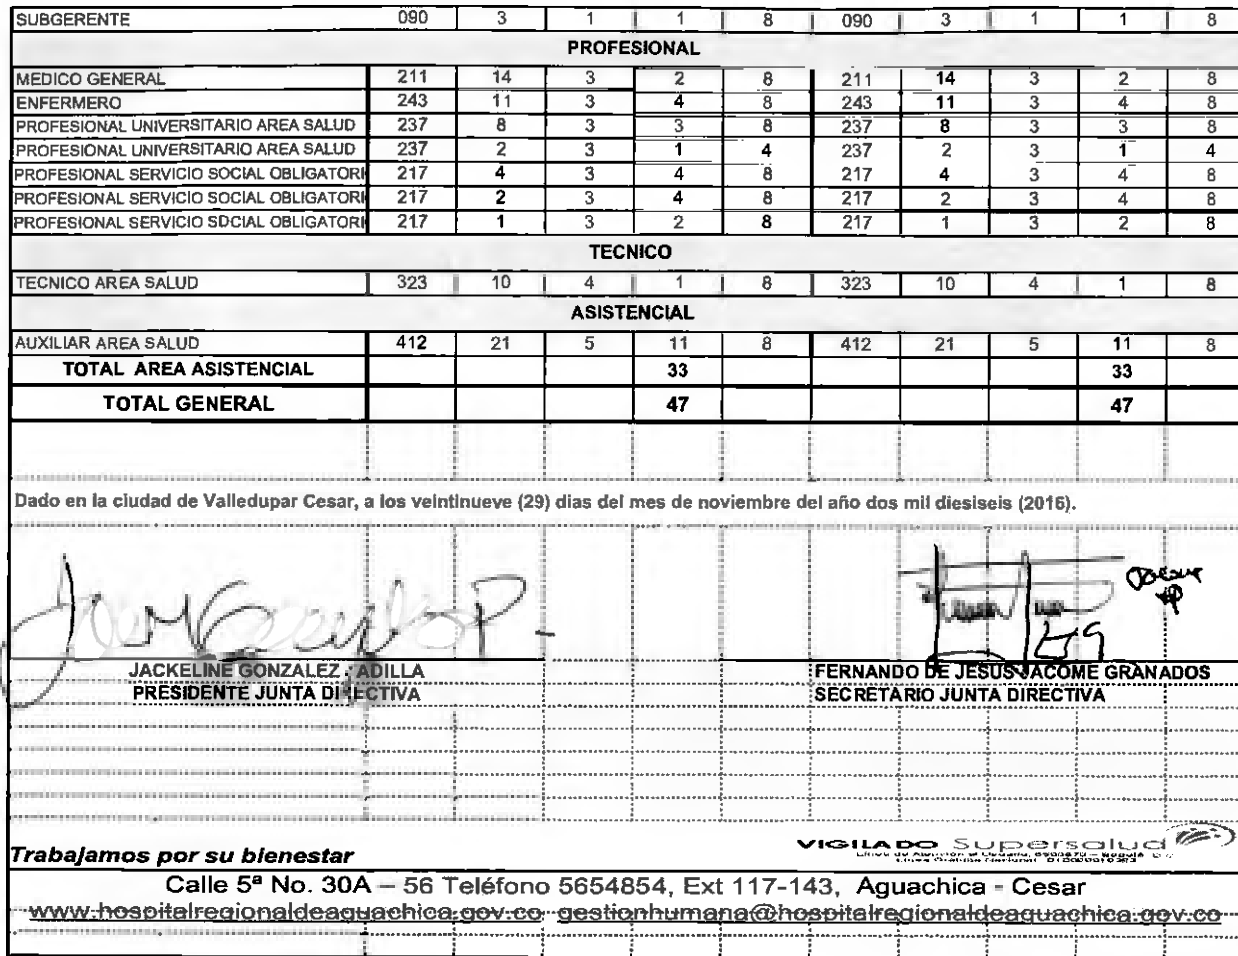 SUBGERENTE 090 3 1 1 8 090 3 1 1 8
PROFESIONAL
MEDICO GENERAL 211 14 3 2 8 211 14 3 2 8
ENFERMERO 243 11 3 4 8 243 11 3 4 8
PROFESIONAL UNIVERSITARIO AREA SALUD 237 8 3 3 8 237 8 3 3 8
PROFESIONAL UNIVERSITARIO AREA SALUD 237 2 3 1 4 237 2 3 1 4
PROFESIONAL SERVICIO SOCIAL OBLIGATORI 217 4 3 4 8 217 4 3 4 8
PROFESIONAL SERVICIO SOCIAL OBLIGATORI 217 2 3 4 8 217 2 3 4 8
PROFESIONAL SERVICIO SOCIAL OBLIGATORI 217 1 3 2 8 217 1 3 2 8
TECNICO
TECNICO AREA SALUD 323 10 4 1 8 323 10 4 1 8
ASISTENCIAL
AUXILIAR AREA SALUD 412 21 5 11 8 412 21 5 11 8
TOTAL AREA ASISTENCIAL 33 33
TOTAL GENERAL 47 47
Dado en la ciudad de Valledupar Cesar, a los veintinueve (29) dias del mes de noviembre del año dos mil diesiseis (2016).
JACKELINE GONZALEZ ADILLA FERNANDO DE JESUS JACOME GRANADOS
PRESIDENTE JUNTA DI ECTIVA SECRETARIO JUNTA DIRECTIVA
VIGILADO Supersalud
Trabajamos por su bienestar
Calle 5ª No. 30A – 56 Teléfono 5654854, Ext 117-143, Aguachica - Cesar
www.hospitalregionaldeaguachica.gov.co gestionhumana@hospitalregionaldeaguachica.gov.co